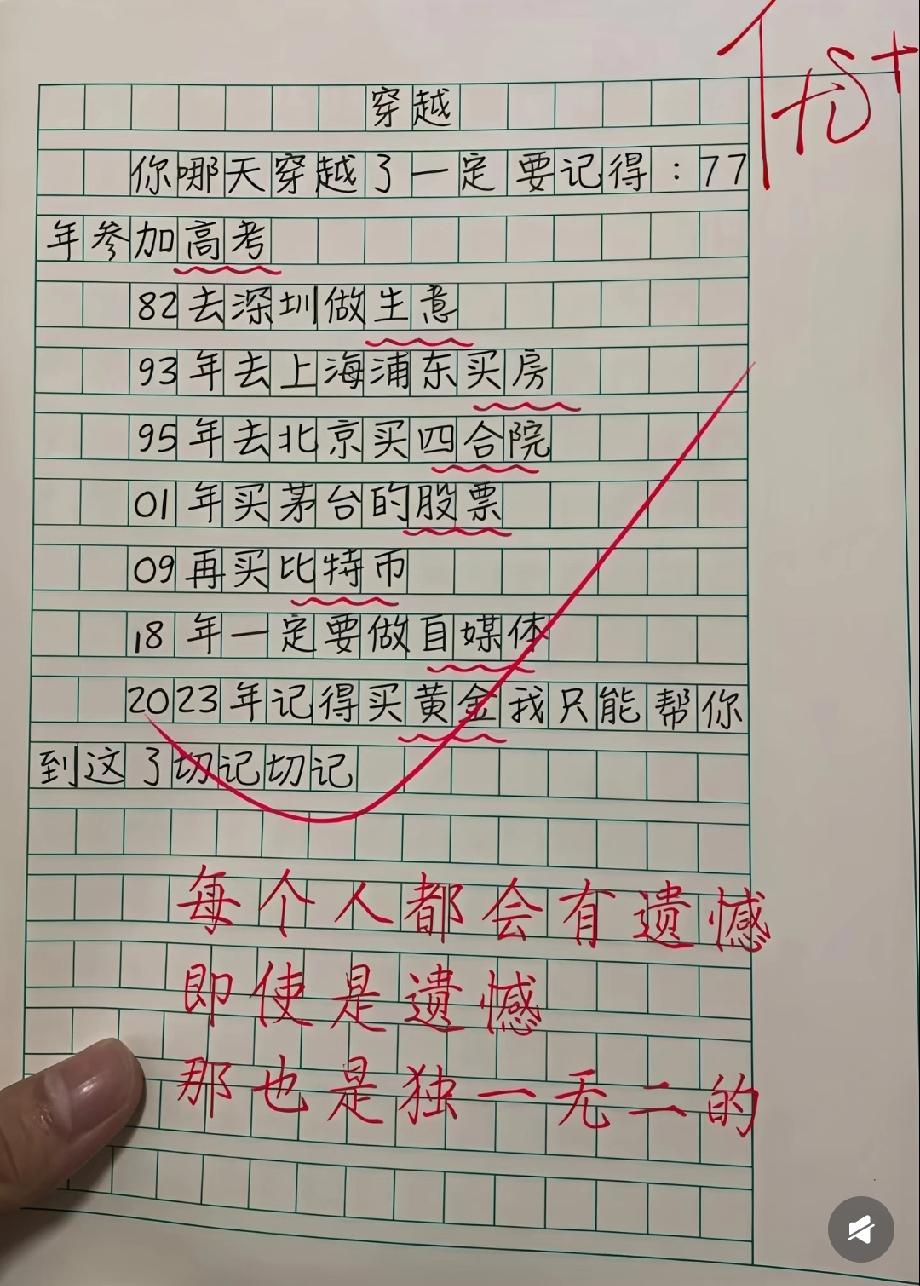 优+
穿越
你哪天穿越了一定要记得：77
年参加高考
82去深圳做生意
93年去上海浦东买房
95年去北京买四合院
01年买茅台的股票
09再买比特币
18年一定要做自媒体
2023年记得买黄金我只能帮你
到这了切记切记
每个人都会有遗憾
即使是遗憾
那也是独一无二的